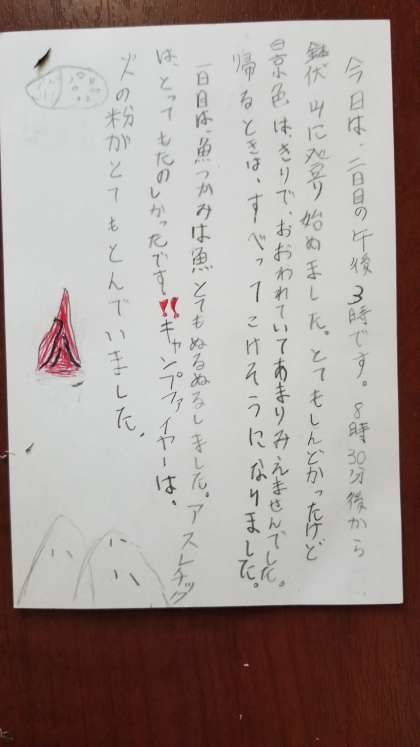 今日は、二日目の午後3時です。8時30分後から
鉢伏山に登り始めました。とてもしんどかったけど
景色はきりで、おおわれていてあまりみえませんでした。
帰るときは、すーべってこけそうになりました。
一日目は、魚つかみは魚とてもぬるぬるしました。アスレチック
は、とってもたのしかったです‼キャンプファイヤーは、
火の粉がとてもとんでいました。